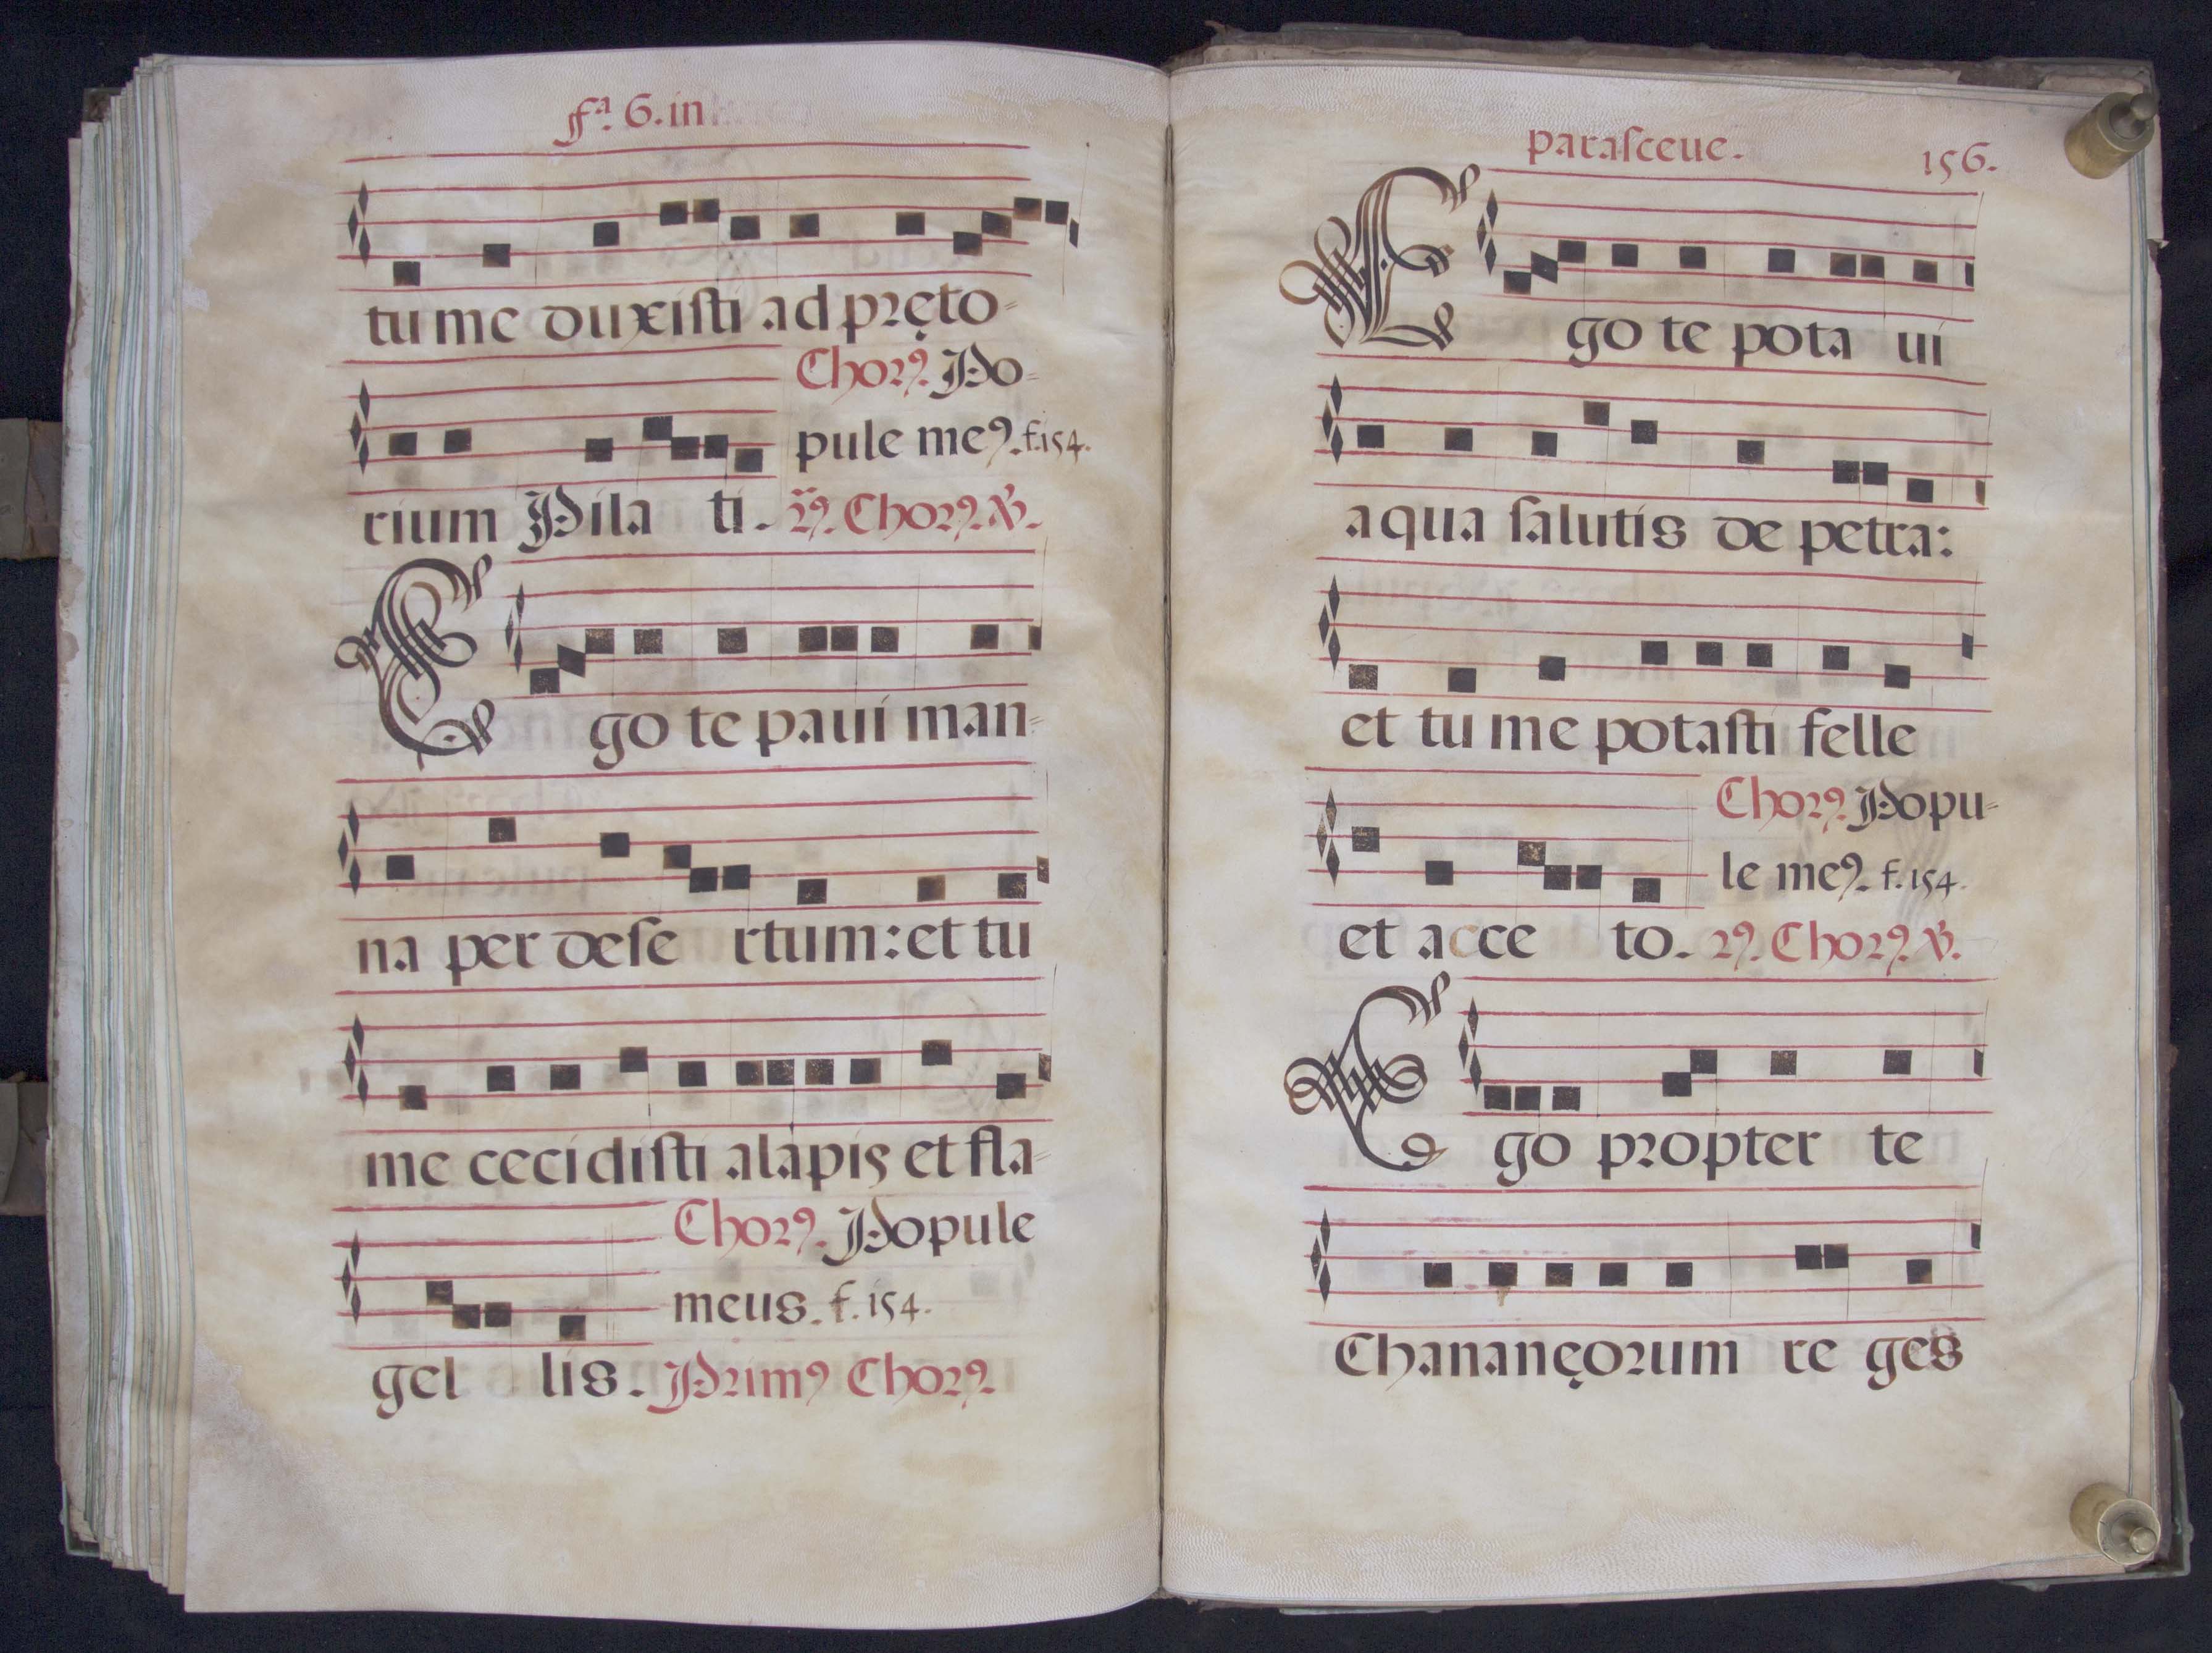 fª. 6. in
tu me duxisti ad pręto=
Chorꝯ. Po=
pule meꝯ. f. 154.
rium Pila ti. 2ꝯ. Chorꝯ. ℣.
Ego te paui man=
na per dese rtum: et tu
me cecidisti alapis et fla=
Chorꝯ. Popule
meus. f. 154.
gel lis. Primꝯ Chorꝯ.
parasceue. 156.
Ego te pota ui
aqua salutis de petra:
et tu me potasti felle
Chorꝯ. Popu=
le meꝯ. f. 154.
et acce to. 2ꝯ. Chorꝯ. ℣.
Ego propter te
Chananęorum re ges